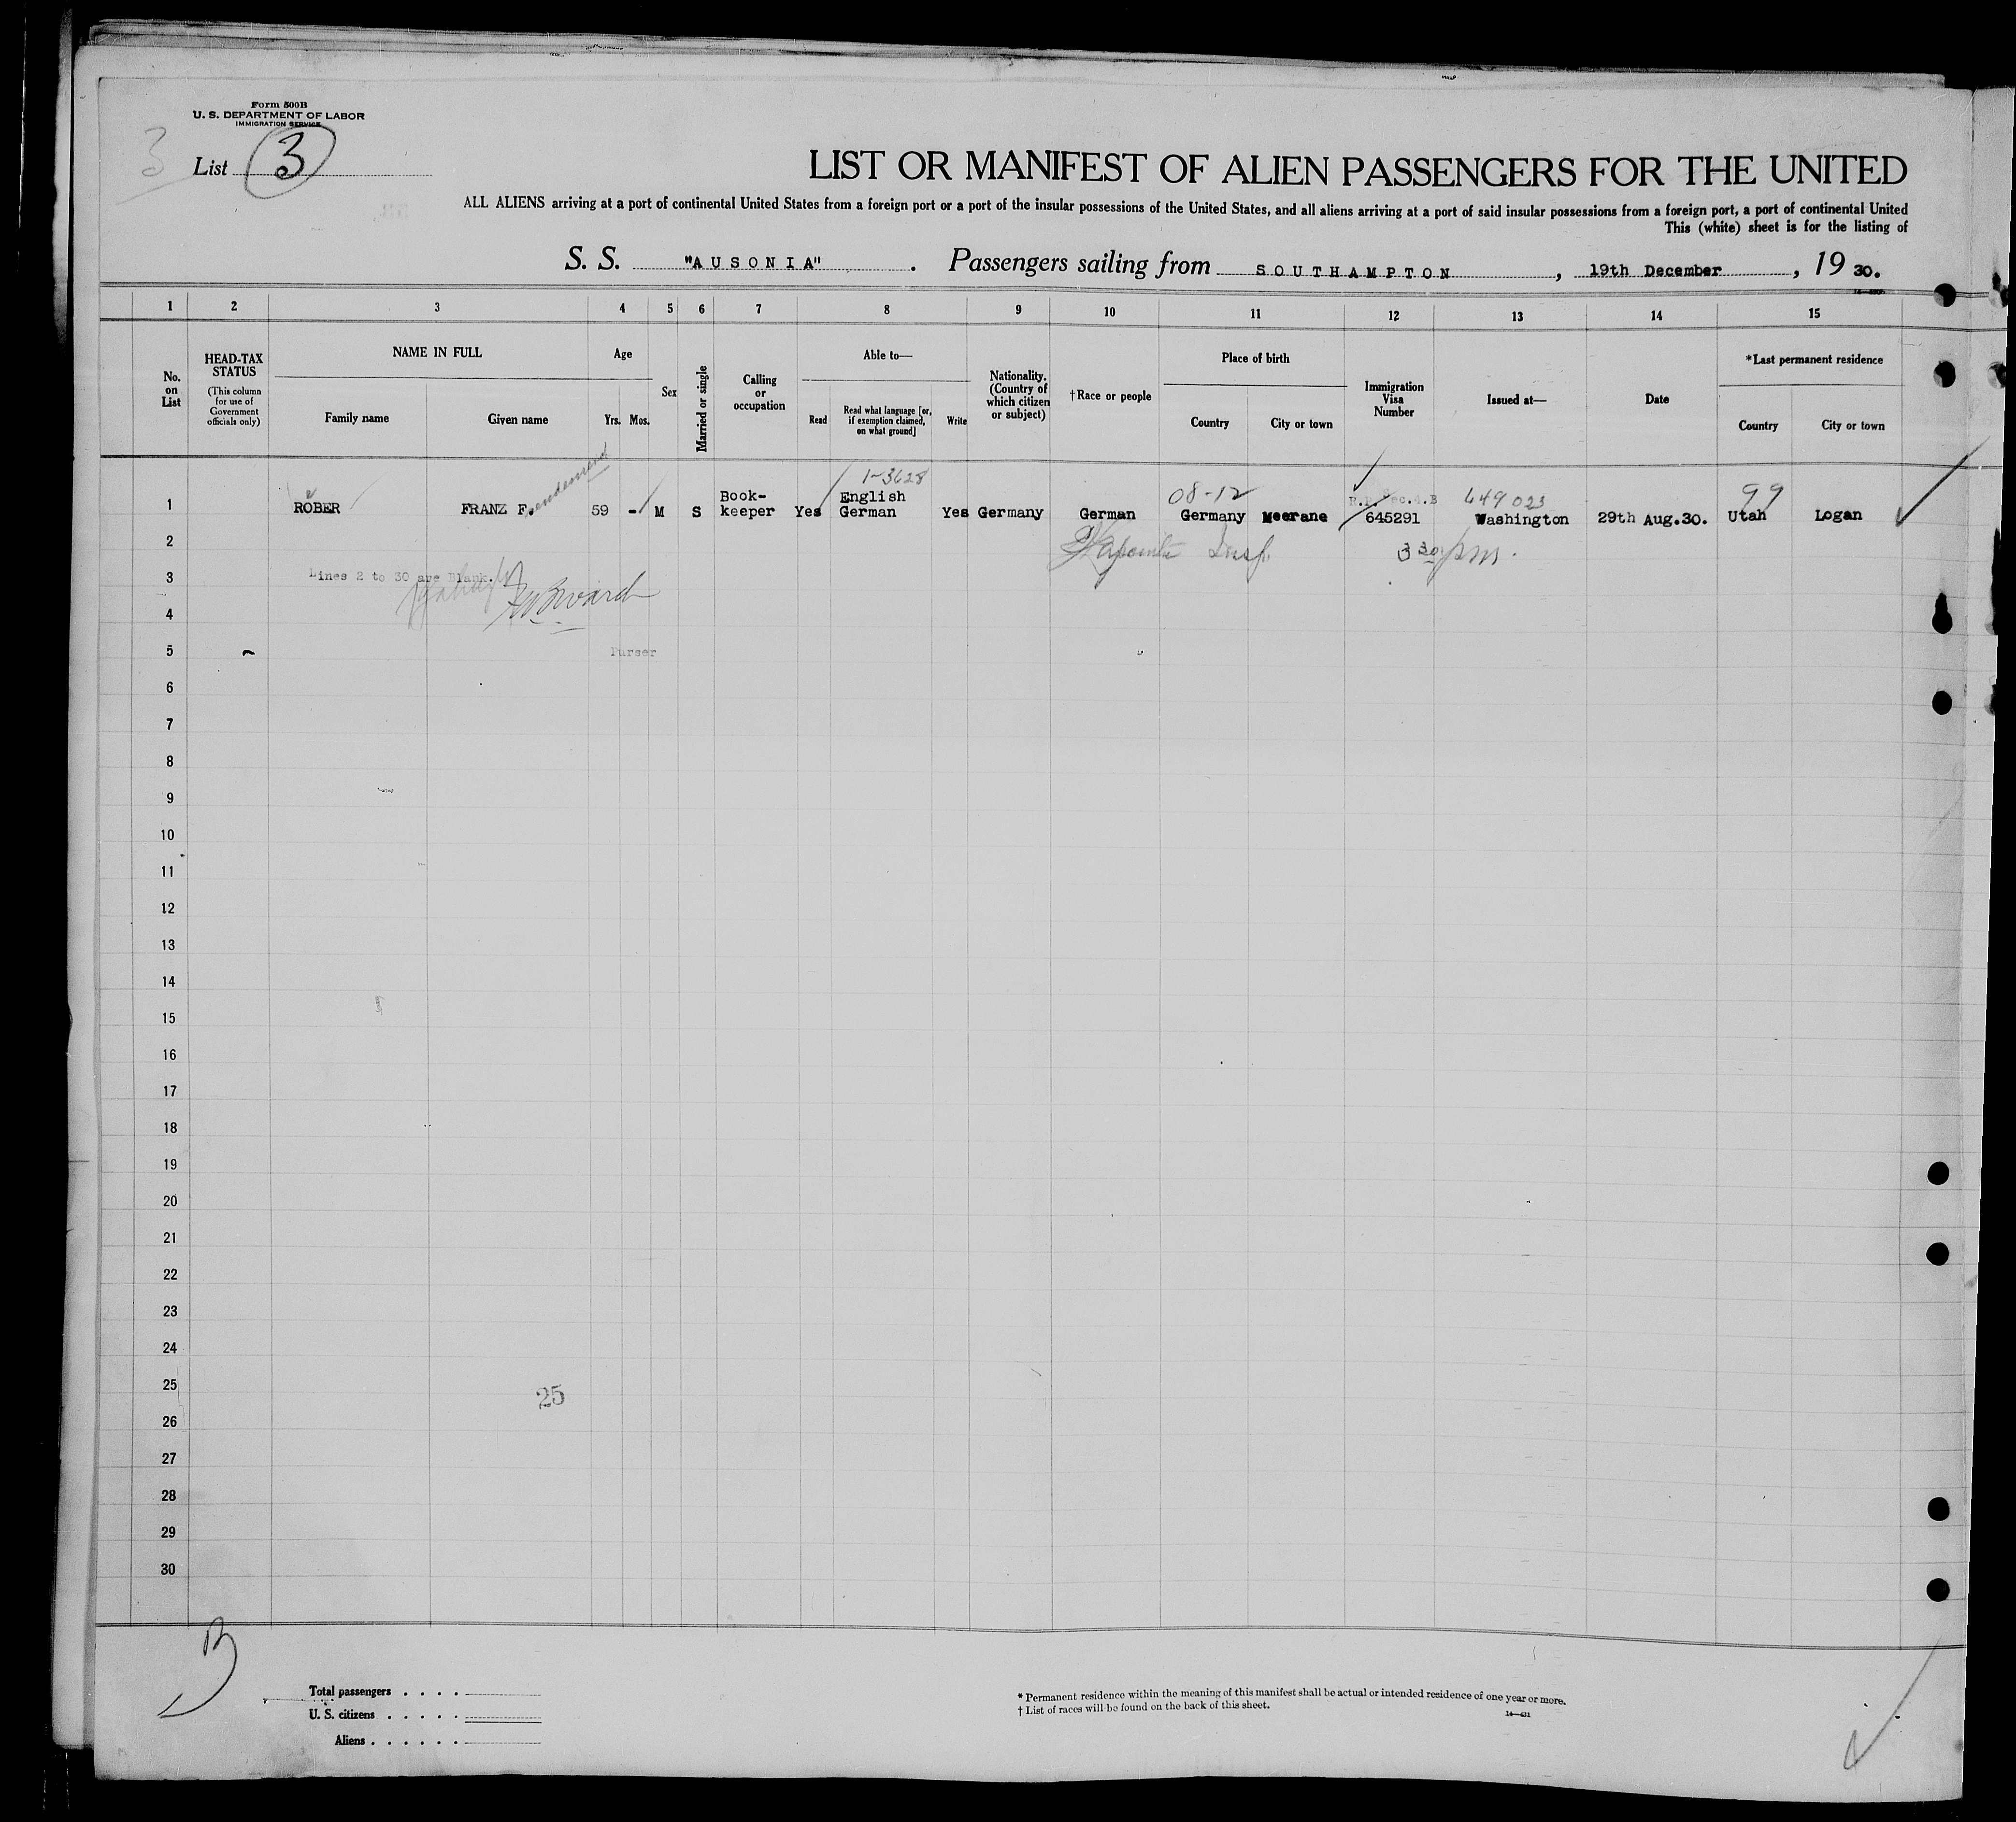 Form 500B
U. S. DEPARTMENT OF LABOR
IMMIGRATION SERVICE
3
List 3
LIST OR MANIFEST OF ALIEN PASSENGERS FOR THE UNITED
ALL ALIENS arriving at a port of continental United States from a foreign port or a port of the insular possessions of the United States, and all aliens arriving at a port of said insular possessions from a foreign port, a port of continental United
This (white) sheet is for the listing of
S. S. "AUSONIA". Passengers sailing from SOUTHAMPTON, 19th December, 19 30.
1 2 3 4 5 6 7 8 9 10 11 12 13 14 15
No. on List
HEAD-TAX STATUS
(This column for use of Government officials only)
NAME IN FULL
Family name
Given name
Age
Yrs. Mos.
Sex
Married or single
Calling or occupation
Able to—
Read
Read what language [or, if exemption claimed, on what ground]
Write
Nationality. (Country of which citizen or subject)
†Race or people
Place of birth
Country
City or town
Immigration Visa Number
Issued at—
Date
*Last permanent residence
Country
City or town
1-3628
08-12
649023
99
1 ROBER FRANZ F. 59 - M S Book-keeper Yes English German Yes Germany German Germany Meerane 645291 Washington 29th Aug.30. Utah Logan
2 Insp. 3 30 pm.
3 Lines 2 to 30 are Blank.
4
5 Purser
6
7
8
9
10
11
12
13
14
15
16
17
18
19
20
21
22
23
24
25
25
26
27
28
29
30
Total passengers . . . .
U. S. citizens . . . . .
Aliens . . . . . .
* Permanent residence within the meaning of this manifest shall be actual or intended residence of one year or more.
† List of races will be found on the back of this sheet.